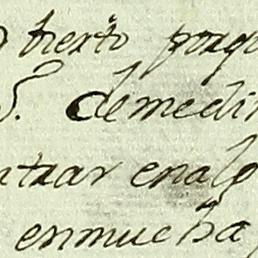 bierto porq
S. demedi
ntrar enalg
enmucha